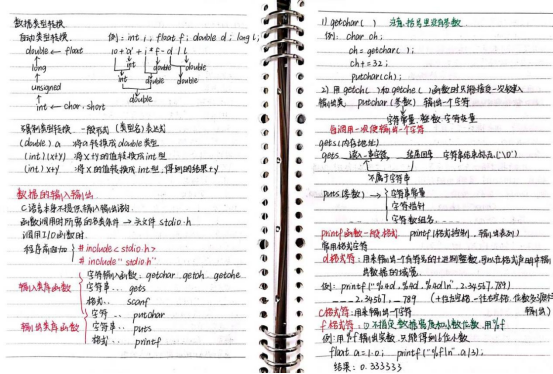 数据类型转换
自动类型转换
例: int i; float f; double d; long l;
double ← float
10+'a'+i*f-d/l
↑
long
int double double
↑
unsigned
int double
↑
double
int ← char.short
强制类型转换 一般形式 (类型名)表达式
(double) a 将a转换成double类型
(int)(x+y) 将x+y的值转换成int型
(int) x+y 将x的值转换成int型,得到的结果+y
数据的输入输出
C语言本身不提供输入输出语句
函数调用时所需的各类条件 → 头文件 stdio.h
调用I/O函数时.
程序前面加 { #include<stdio.h>
#include"stdio.h"
输入类库函数 { 字符输入函数: getchar. getch. getche
字符串.. gets
格式.. scanf
输出类库函数 { 字符.. putchar
字符串.. puts
格式.. printf
1) getchar( ) 注意:括号里没有参数.
例: char ch;
ch = getchar( );
ch += 32;
putchar(ch);
2) 用getch( )和getche( )函数时只能接受一次键入
输出类. putchar(参数) 输出一个字符
字符常量. 整数. 字符变量
每调用一次便输出一个字符
gets(内存地址)
gets 读入一串字符, 结尾回车 字符串结束标志('\0')
不属于字符串
puts(参数) → { 字符串常量
字符指针
字符数组名.
printf函数一般格式 printf(格式控制, 输出表列)
常用格式字符
d格式符: 用来输出一个有符号的十进制整数,可以在格式声明中输
出数据的域宽.
例: printf("%4d, %4d, %4d\n", 2, 34567, 789)
_ _ _2, 34567, _789
c格式符: 用来输出一个字符
f格式符: ① 不指定数据宽度和小数位数. 用%f
例: 用%f输出实数, 只能得到6位小数
float a=1.0; printf("%f\n", a/3);
结果: 0.333333